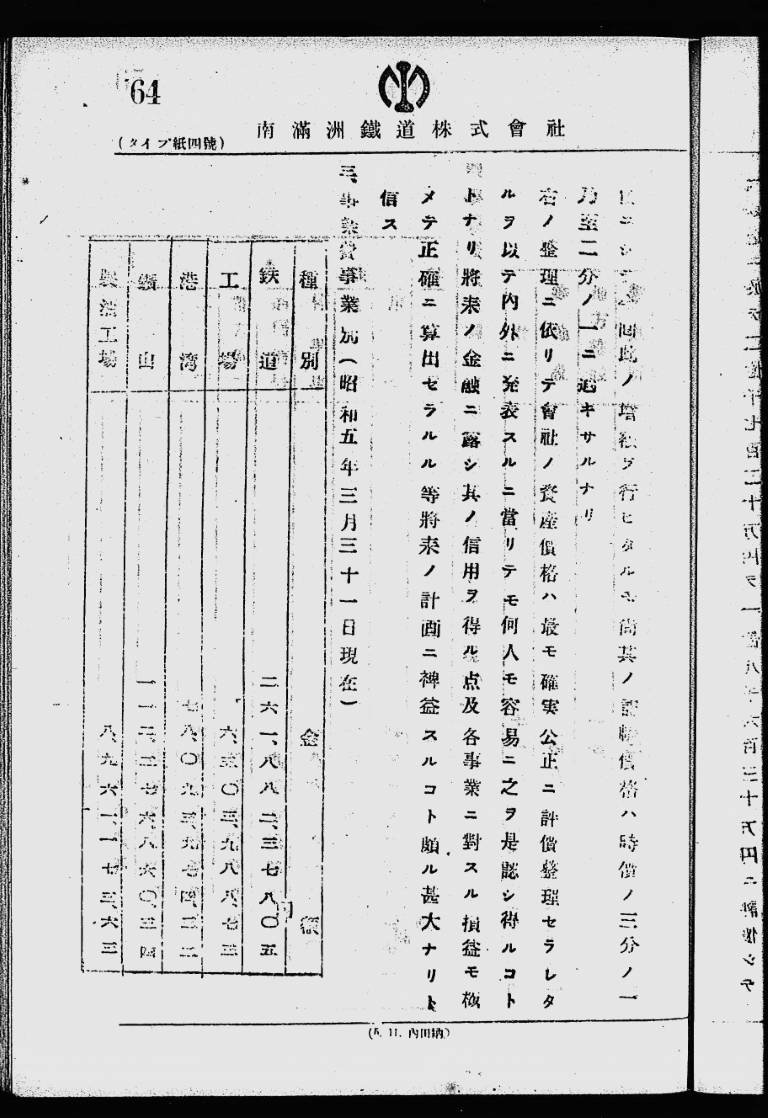 64
南滿洲鐵道株式會社
(タイプ紙四號)
回此ノ增額ヲ行ヒタルモ尙其ノ評價價格ハ時價ノ三分ノ一
乃至二分ノ一ニ過キサルナリ
右ノ整理ニ依リテ會社ノ資產價格ハ最モ確実公正ニ評價整理セラレタ
ルヲ以テ内外ニ発表スルニ當リテモ何人モ容易ニ之ヲ是認シ得ルコト
トナリ將来ノ金融ニ資シ其ノ信用ヲ得ル点及各事業ニ對スル損益モ極
メテ正確ニ算出セラルル等將来ノ計画ニ裨益スルコト頗ル甚大ナリト
信ス
三、事業費事業別(昭和五年三月三十一日現在)
種別 金額
鉄道 二六一、八八二、三七八〇五 円
工場 六、三〇三、九八八、七三
港湾 七八、〇九三、九七四、三二
鑛山 一一二、二七六、八六〇、三四
製油工場 八、九六一、一七三、六三
(5. 11. 內田納)